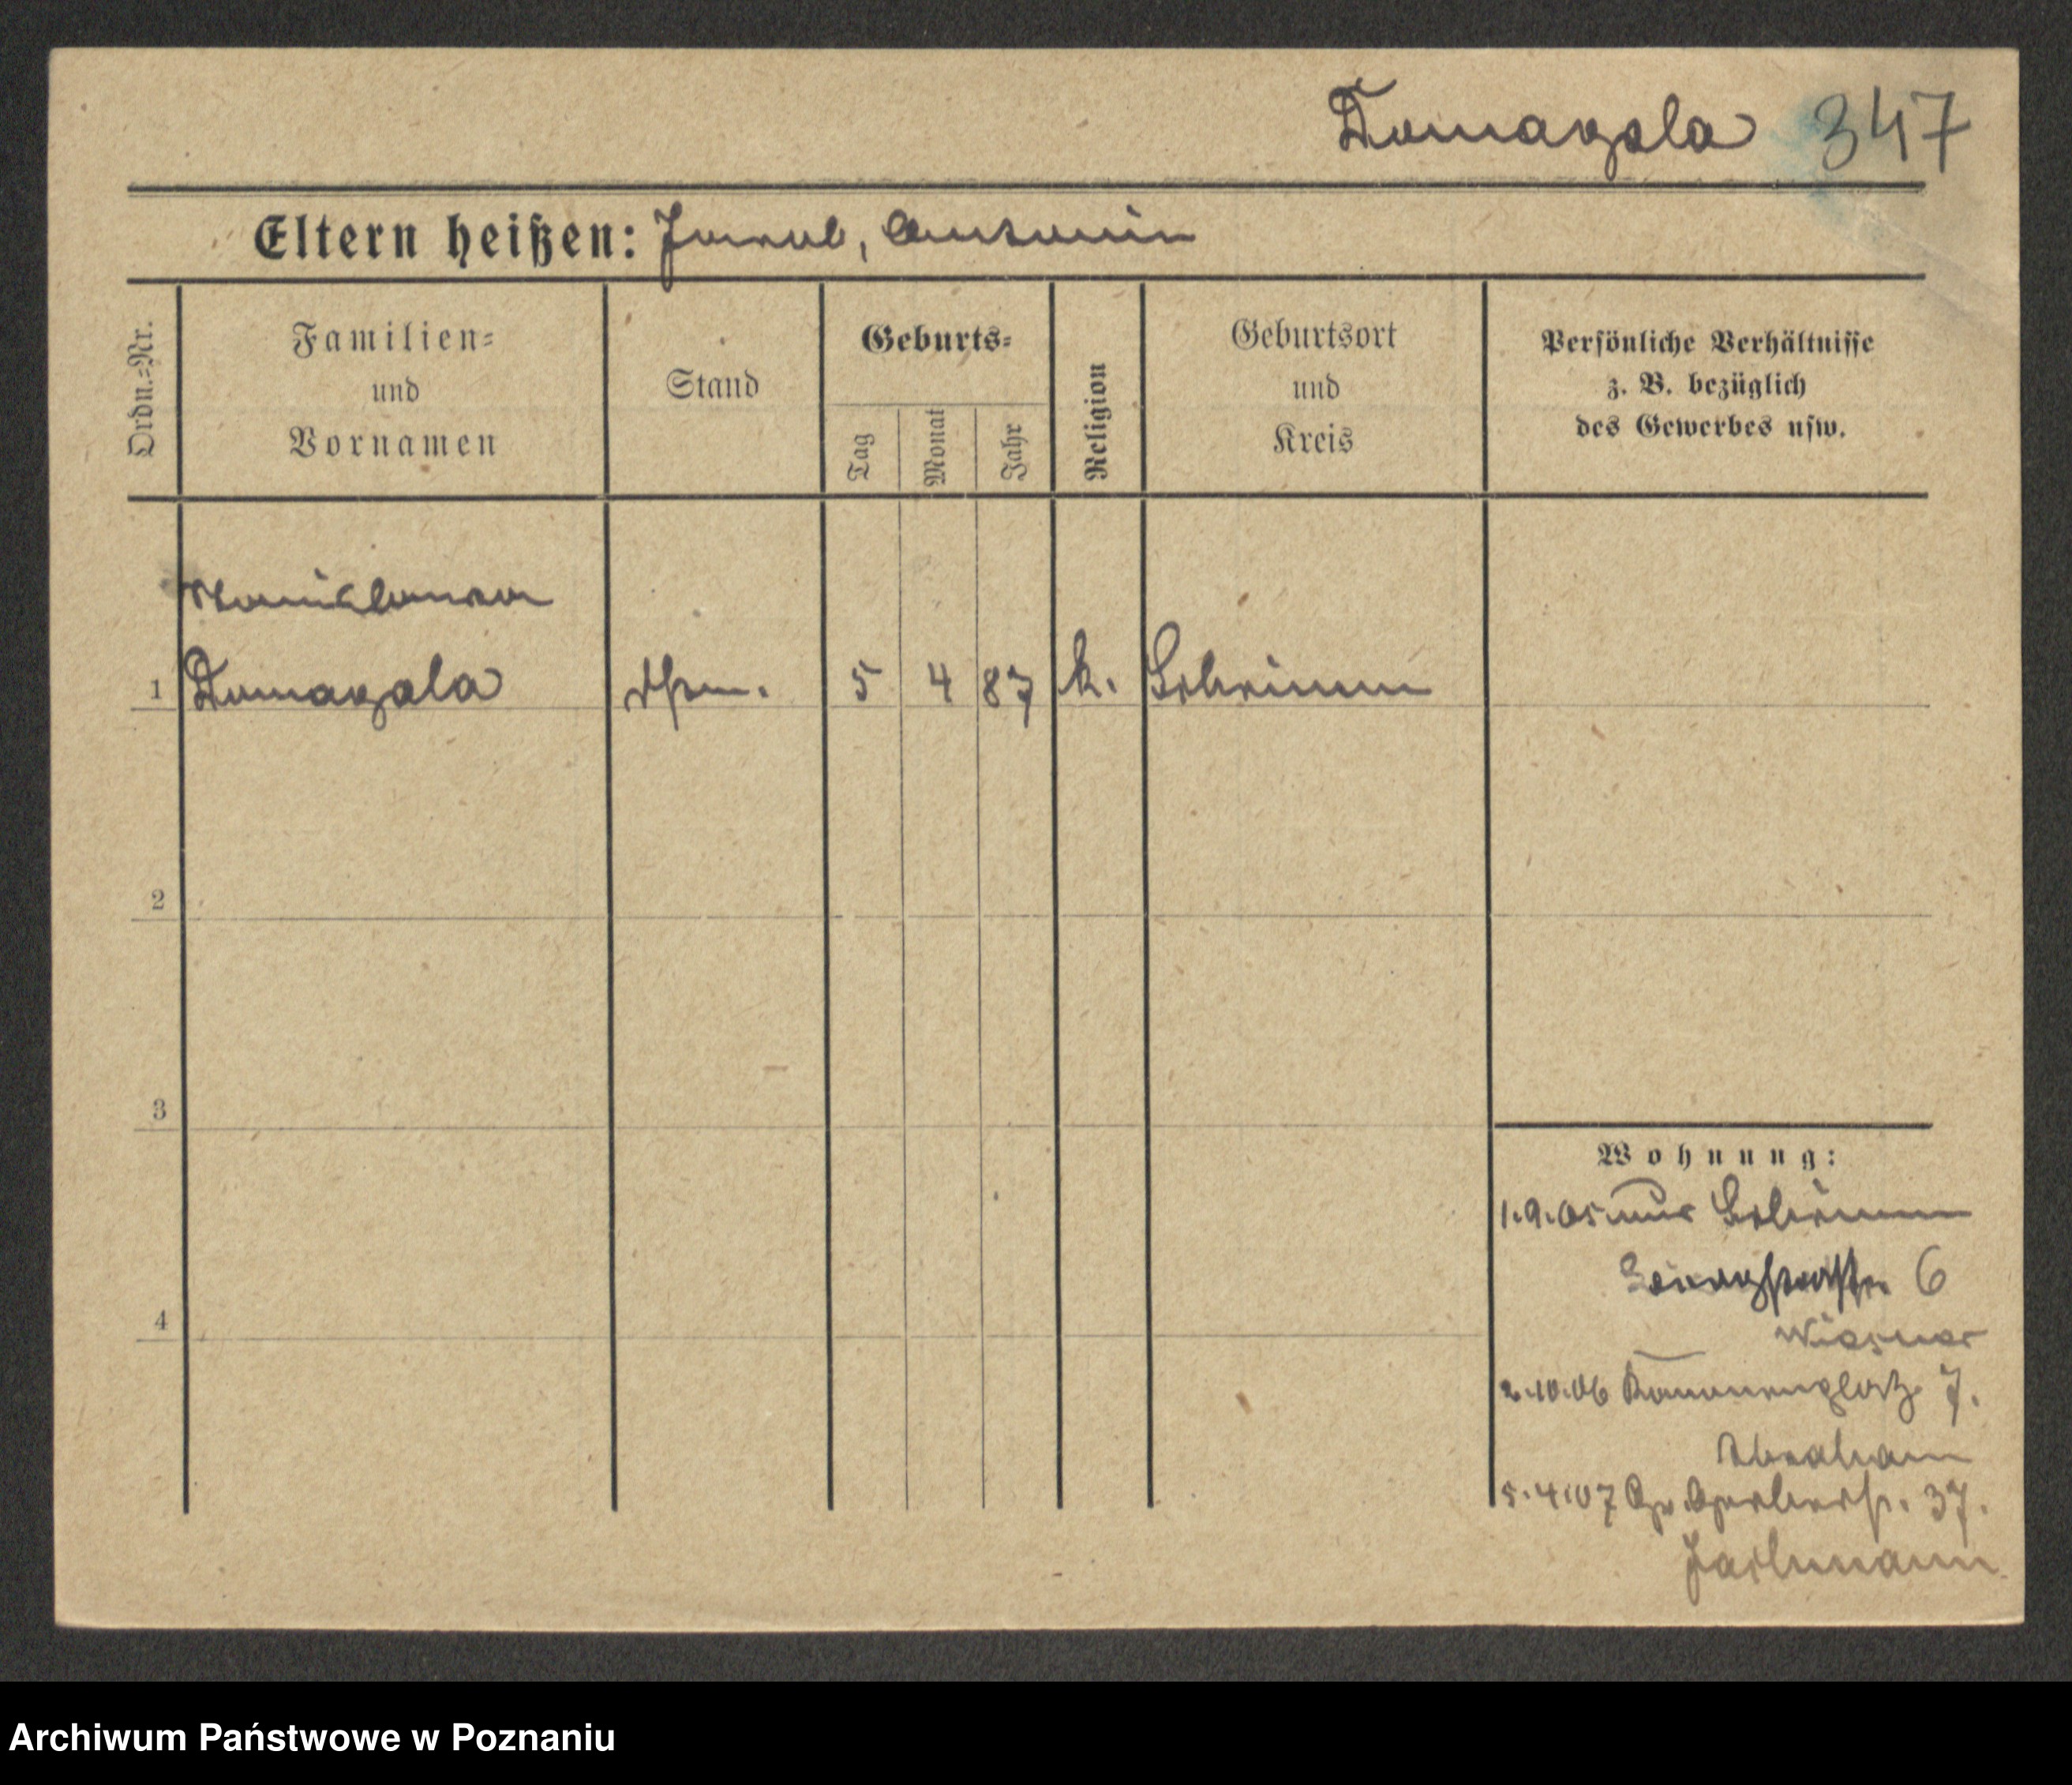 Domagala 347
Eltern heißen: Jacob, Antonie
Ordn.=Nr.
Familien=
und
Vornamen
Stand
Geburts=
Tag
Monat
Jahr
Religion
Geburtsort
und
Kreis
Persönliche Verhältnisse
z. B. bezüglich
des Gewerbes usw.
Stanislawa
1 Domagala 5 4 87 k. Schrimm
2
3
4
Wohnung:
1.9.05 aus Schrimm
6
Wiesner
2.10.06 Kanonenplatz 7.
Abraham
5.4.07 Gr. Gerberstr. 37.
Jachmann
Archiwum Państwowe w Poznaniu